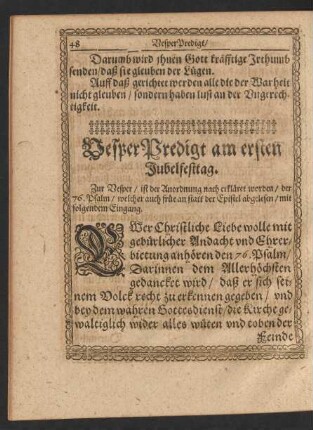 48 Vesper Predigt/
Darumb wird jhnen Gott kräfftige Jrthumb
senden/ daß sie gleuben der Lügen.
Auff daß gerichtet werden alle die der Warheit
nicht gleuben/ sondern haben lust an der Vngerech-
tigkeit.
Vesper Predigt am ersten
Jubelfesttag.
Zur Vesper/ ist der Anordnung nach erkläret worden/ der
76. Psalm/ welcher auch früe an statt der Epistel abgelesen/ mit
folgendem Eingang.
EWer Christliche Liebe wolle mit
gebürlicher Andacht vnd Ehrer-
bietung anhören den 76. Psalm/
Darinnen dem Allerhöchsten
gedancket wird/ daß er sich sei-
nem Volck recht zu erkennen gegeben/ vnd
bey dem wahren Gottesdienst/ die Kirche ge-
waltiglich wider alles wüten vnd toben der
Feinde